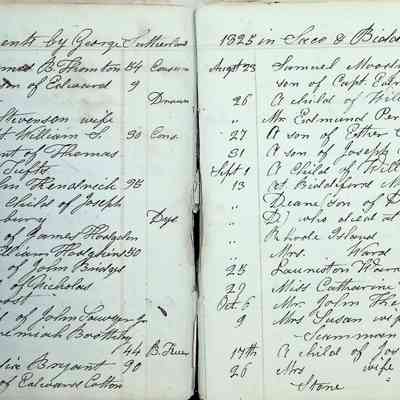 ents by George Sutherland
mas B. Thornton 54 Consum
on of Edward 9
Drown
Stevenson wife
t William S. 30 Cons.
nt of Thomas
Tufts
hn Kendrick 95
Child of Joseph
bury Dys
of James Hodgdon
William Hodgkins 50
of John Bridges
of Nicholas
d of John Sawyer
remiah Boothby
44 B. Fever
Bryant 90
of Edward Cotton
1825 in Saco & Bidde
Augst 23 Samuel Moody
son of Capt. Ed
26 A child of Will
" Mr. Edmund Per
" 27 A son of Esther
31 A son of Joseph
Sept 1 A Child of Will
13 At Biddeford M
" Deane son of D
" D) who died at
" Rhode Island
" Mrs. Ward
25 Launiston Ward
29 Miss Catharine
Oct. 6 Mr. John The
9 Mrs Susan wife
Scamman
17th A child of Jos
26 Mrs wife
Stone